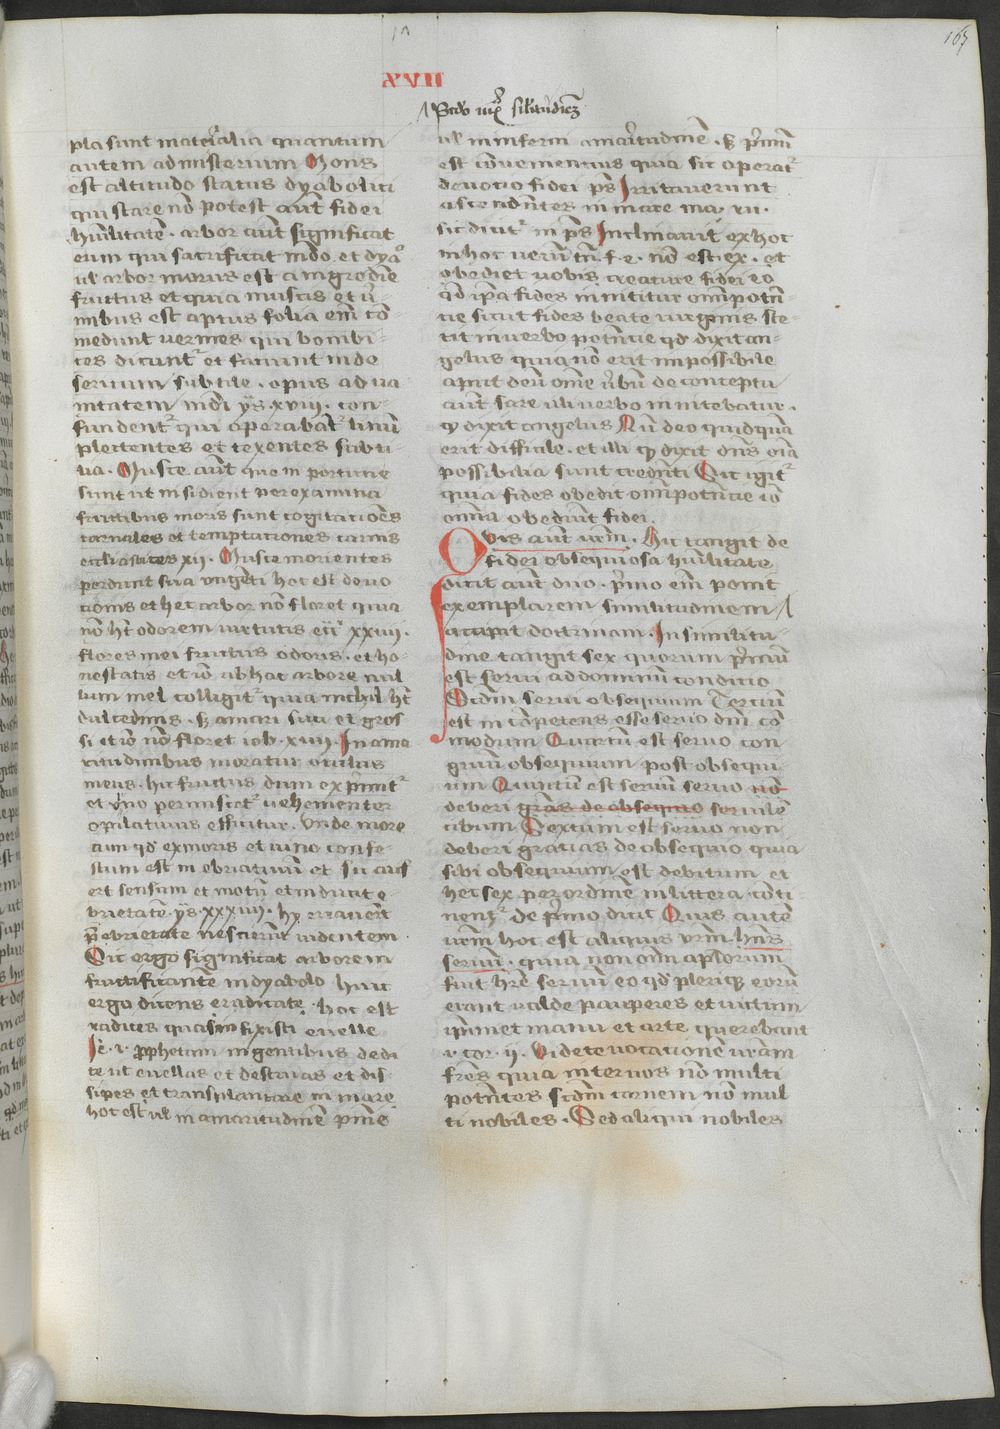 165
XVII
pla sunt materialia quantum
autem ad misterium Mons
est altitudo status dyabolici
qui stare nō potest aūt fidei
hūilitatē . arbor aūt significat
eum qui sacrificat mūdo et dya
ul arbor morus est a nigredīe
fructus et quia muscis et v̄
mibus est aptus folia em̄ co
medunt uermes qui bombi
ces dicunt᷑ et faciunt inde
sericum subtile . opus ad ua
nitatem mūdi ys. xviii. con
fundent᷑ qui operabāt᷑ linū
plectentes et texentes subti
lia . Musce aūt que in porticie
sunt ut insidient per examina
fructibus moris sunt cogitacioēs
carnales et temptationes carnis
eccliastices xii . Musce morientes
perdunt sua ungēti hoc est deuo
cionis et hec arbor nō floret quia
nō hēt odorem uirtutis ecc᷑ xxiiii.
flores mei fructus odoris . et ho
nestatis et iō ab hac arbore nul
lum mel colligit᷑ quia nichil hēt
dulcedinis . s; amari suci et gros
si et iō nō floret iob . xvii . In ama
ritudinibus moratur oculus
meus . hic fructus dum exp̄mit᷑
et vino permiscet᷑ uehementer
opilatiuus efficitur . Unde more
tum qd̄ ex moris et uino confe
ctum est inebriatiuū et sic auf
ert sensum et motū et inducit e
brietatē ys. xxxiiii .
p̄ ebrietate nescierūt uidentem .
Sic ergo significat arborem
fructificantē in dyabolo huic
ergo dicens eradicate . hoc est
radices quas in fixisti euelle
Je. i . prophetam in gentibus dedi
te ut euellas et destruas et dis
sipes et transplantare in mare
hoc est ul in amaritudinē pn̄ie
ul in inferni amaritudinē . s; p̄mū
est conuenientius quia sic operat᷑
deuotio fidei ps̄ Irritauerunt
ascendentes in mare ma. xii .
sic dicit᷑ in ps̄ Inclinauit ex hoc
in hoc uerū tn̄ . f. e. nō est ex . et
obediet uobis creature fidei eo
qd̄ ip̄a fides innititur om̄ipotē
cie sicut fides beate uirginis ste
tit in uerbo potencie qd̄ dixit an
gelus quia nō erit impossibile
aput deū om̄e v̄bū de conceptu
aūt sare illi uerbo innitebatur .
qd dixit angelus Nū deo quidquā
erit difficile . et illi qd dixit dn̄s oīa
possibilia sunt credēti Sic igit᷑
quia fides obedit om̄ipotēcie iō
om̄ia obediūt fidei .
Quis aūt urm̄ . Hic tangit de
fidei obsequiosa hūilitate
dicit aūt duo . p̄mo em̄ ponit
exemplarem similitudinem
accipit doctrinam . In similitu
dine tangit sex quorum p̄mū
est serui ad dominū condicio
Scdm̄ serui obsequium Tercium
est in cōpetens esse seruo dn̄i co
modum Quartū est seruo con
gruū obsequium post obsequi
um Quintū est serui seruo nō
deberi grās de obsequio seruilē
cibum Sextum est seruo non
deberi gracias de obsequio quia
sibi obsequium est debitum et
hec sex per ordinē in littera conti
nent᷑ de p̄mo dicit Quis autē
urm̄ hoc est aliquis urm̄ . hn̄s
seruū . quia non oīm ap̄lorum
fuit hr̄e seruū eo qd̄ plerique eorū
erant ualde pauperes et uictum
ip̄imet manu et arte querebant
i. cor . ii . Videte uocationē ur̄am
fr̄es quia inter uos nō multi
potētes scdm̄ carnem nō mul
ti nobiles . Sed aliqui nobiles